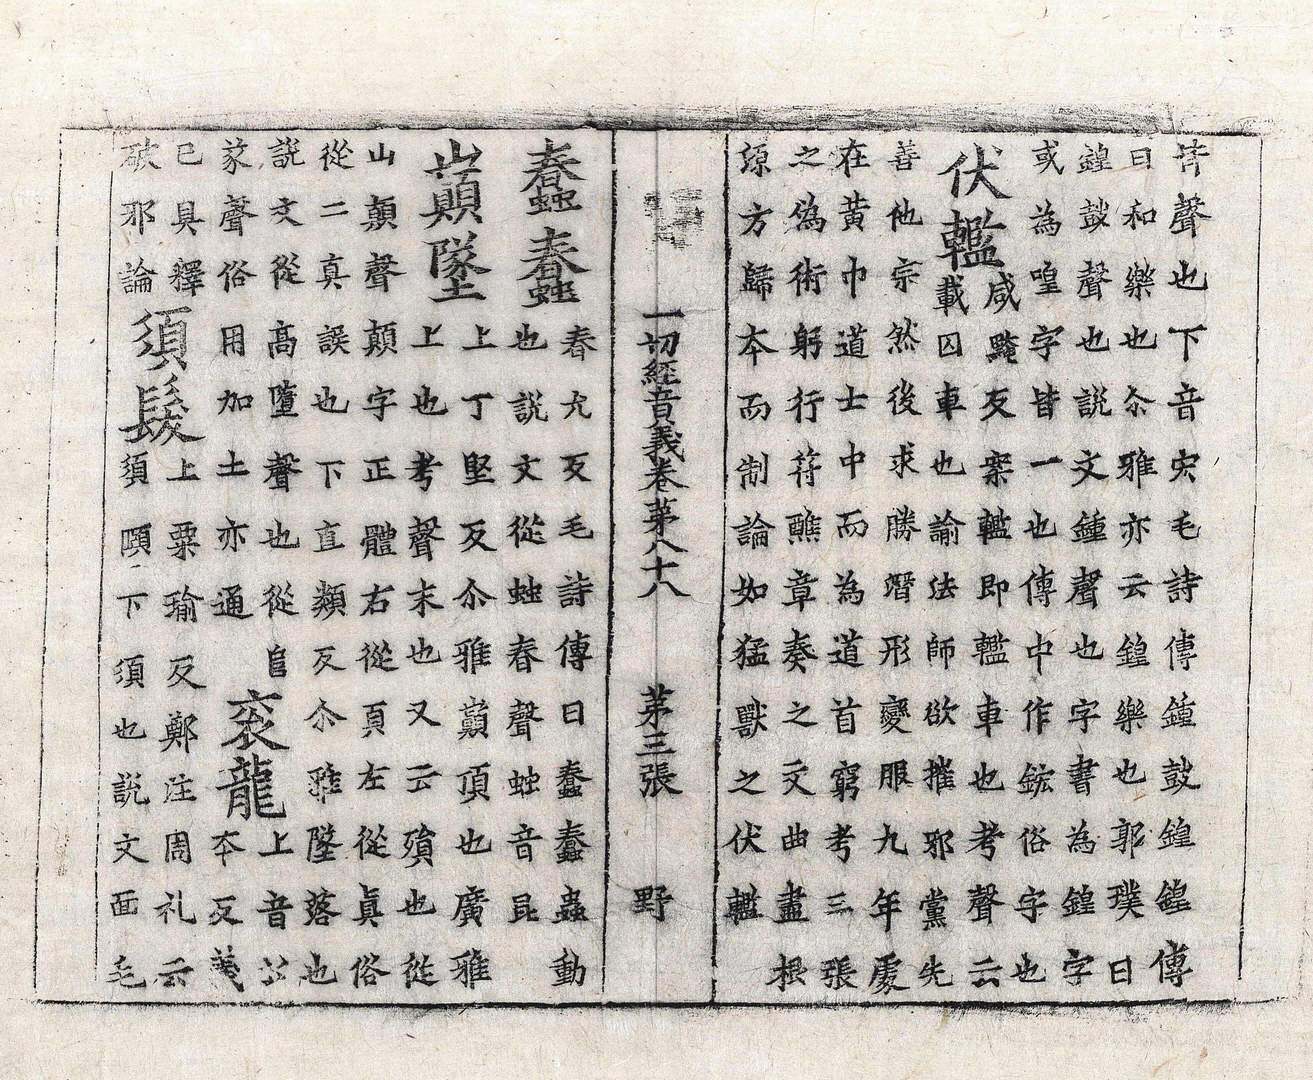 皆聲也下音宏毛詩傳鐘鼓鍠鍠傳
曰和樂也尒雅亦云鍠樂也郭璞曰
鍠鼓聲也說文鍾聲也字書為鍠字
或為喤字皆一也傳中作鋐俗字也
伏轞
咸黤反案轞即轞車也考聲云
載囚車也諭法師欲摧邪黨先
善他宗然後求勝潛形變服九年處
在黃巾道士中而為道首窮考三張
之偽術躬行符醮章奏之文曲盡根
源方歸夲而制論如猛獸之伏轞
一切經音義卷苐八十八 苐三張 野
蠢蠢
春允反毛詩傳曰蠢蠢蟲動
也說文從䖵春聲䖵音昆
巔墬
上丁堅反尒雅巔頂也廣雅
上也考聲末也又云殞也從
山顛聲顛字正體右從頁左從真俗
從二真誤也下直類反尒雅墬落也
說文從高墮聲也從𨸏
㒸聲俗用加土亦通
袞龍
上音
夲反義
已具釋
破邪論
須髮
上粟瑜反鄭注周礼云
須頤下須也說文面毛